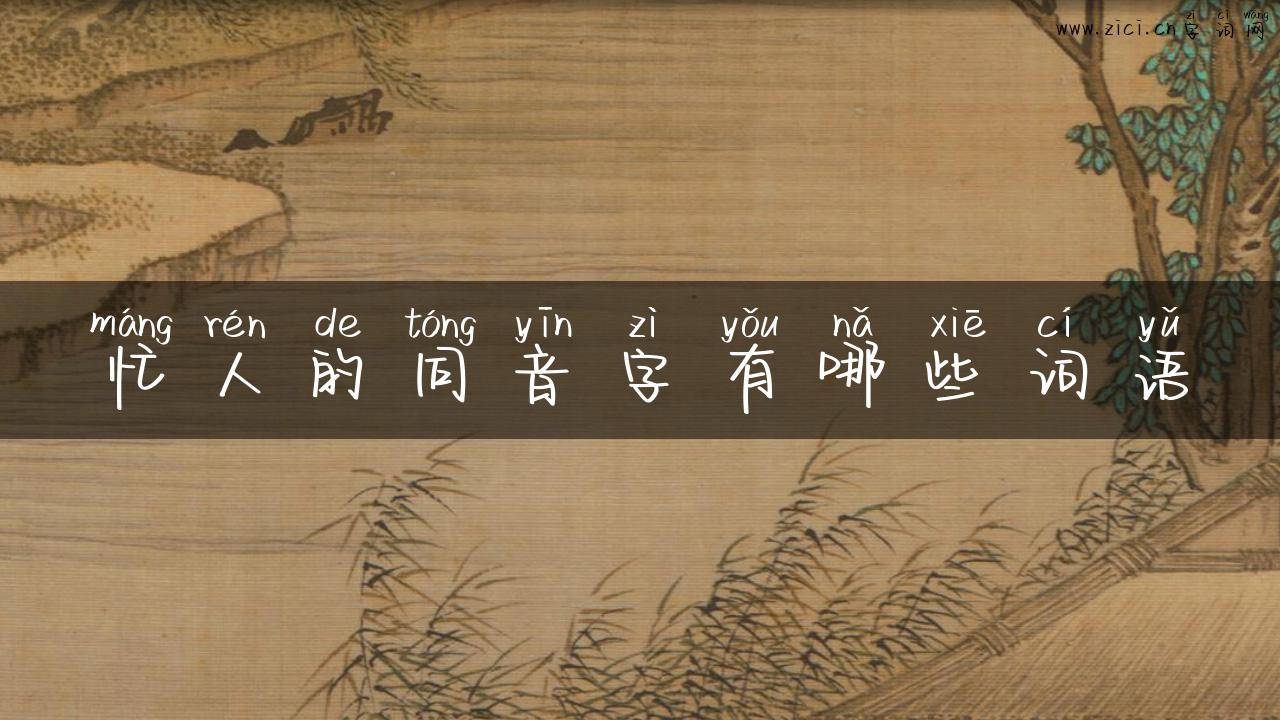 zì cí wǎng
www.zici.cn字词网
máng rén de tóng yīn zì yǒu nǎ xiē cí yǔ
忙人的同音字有哪些词语